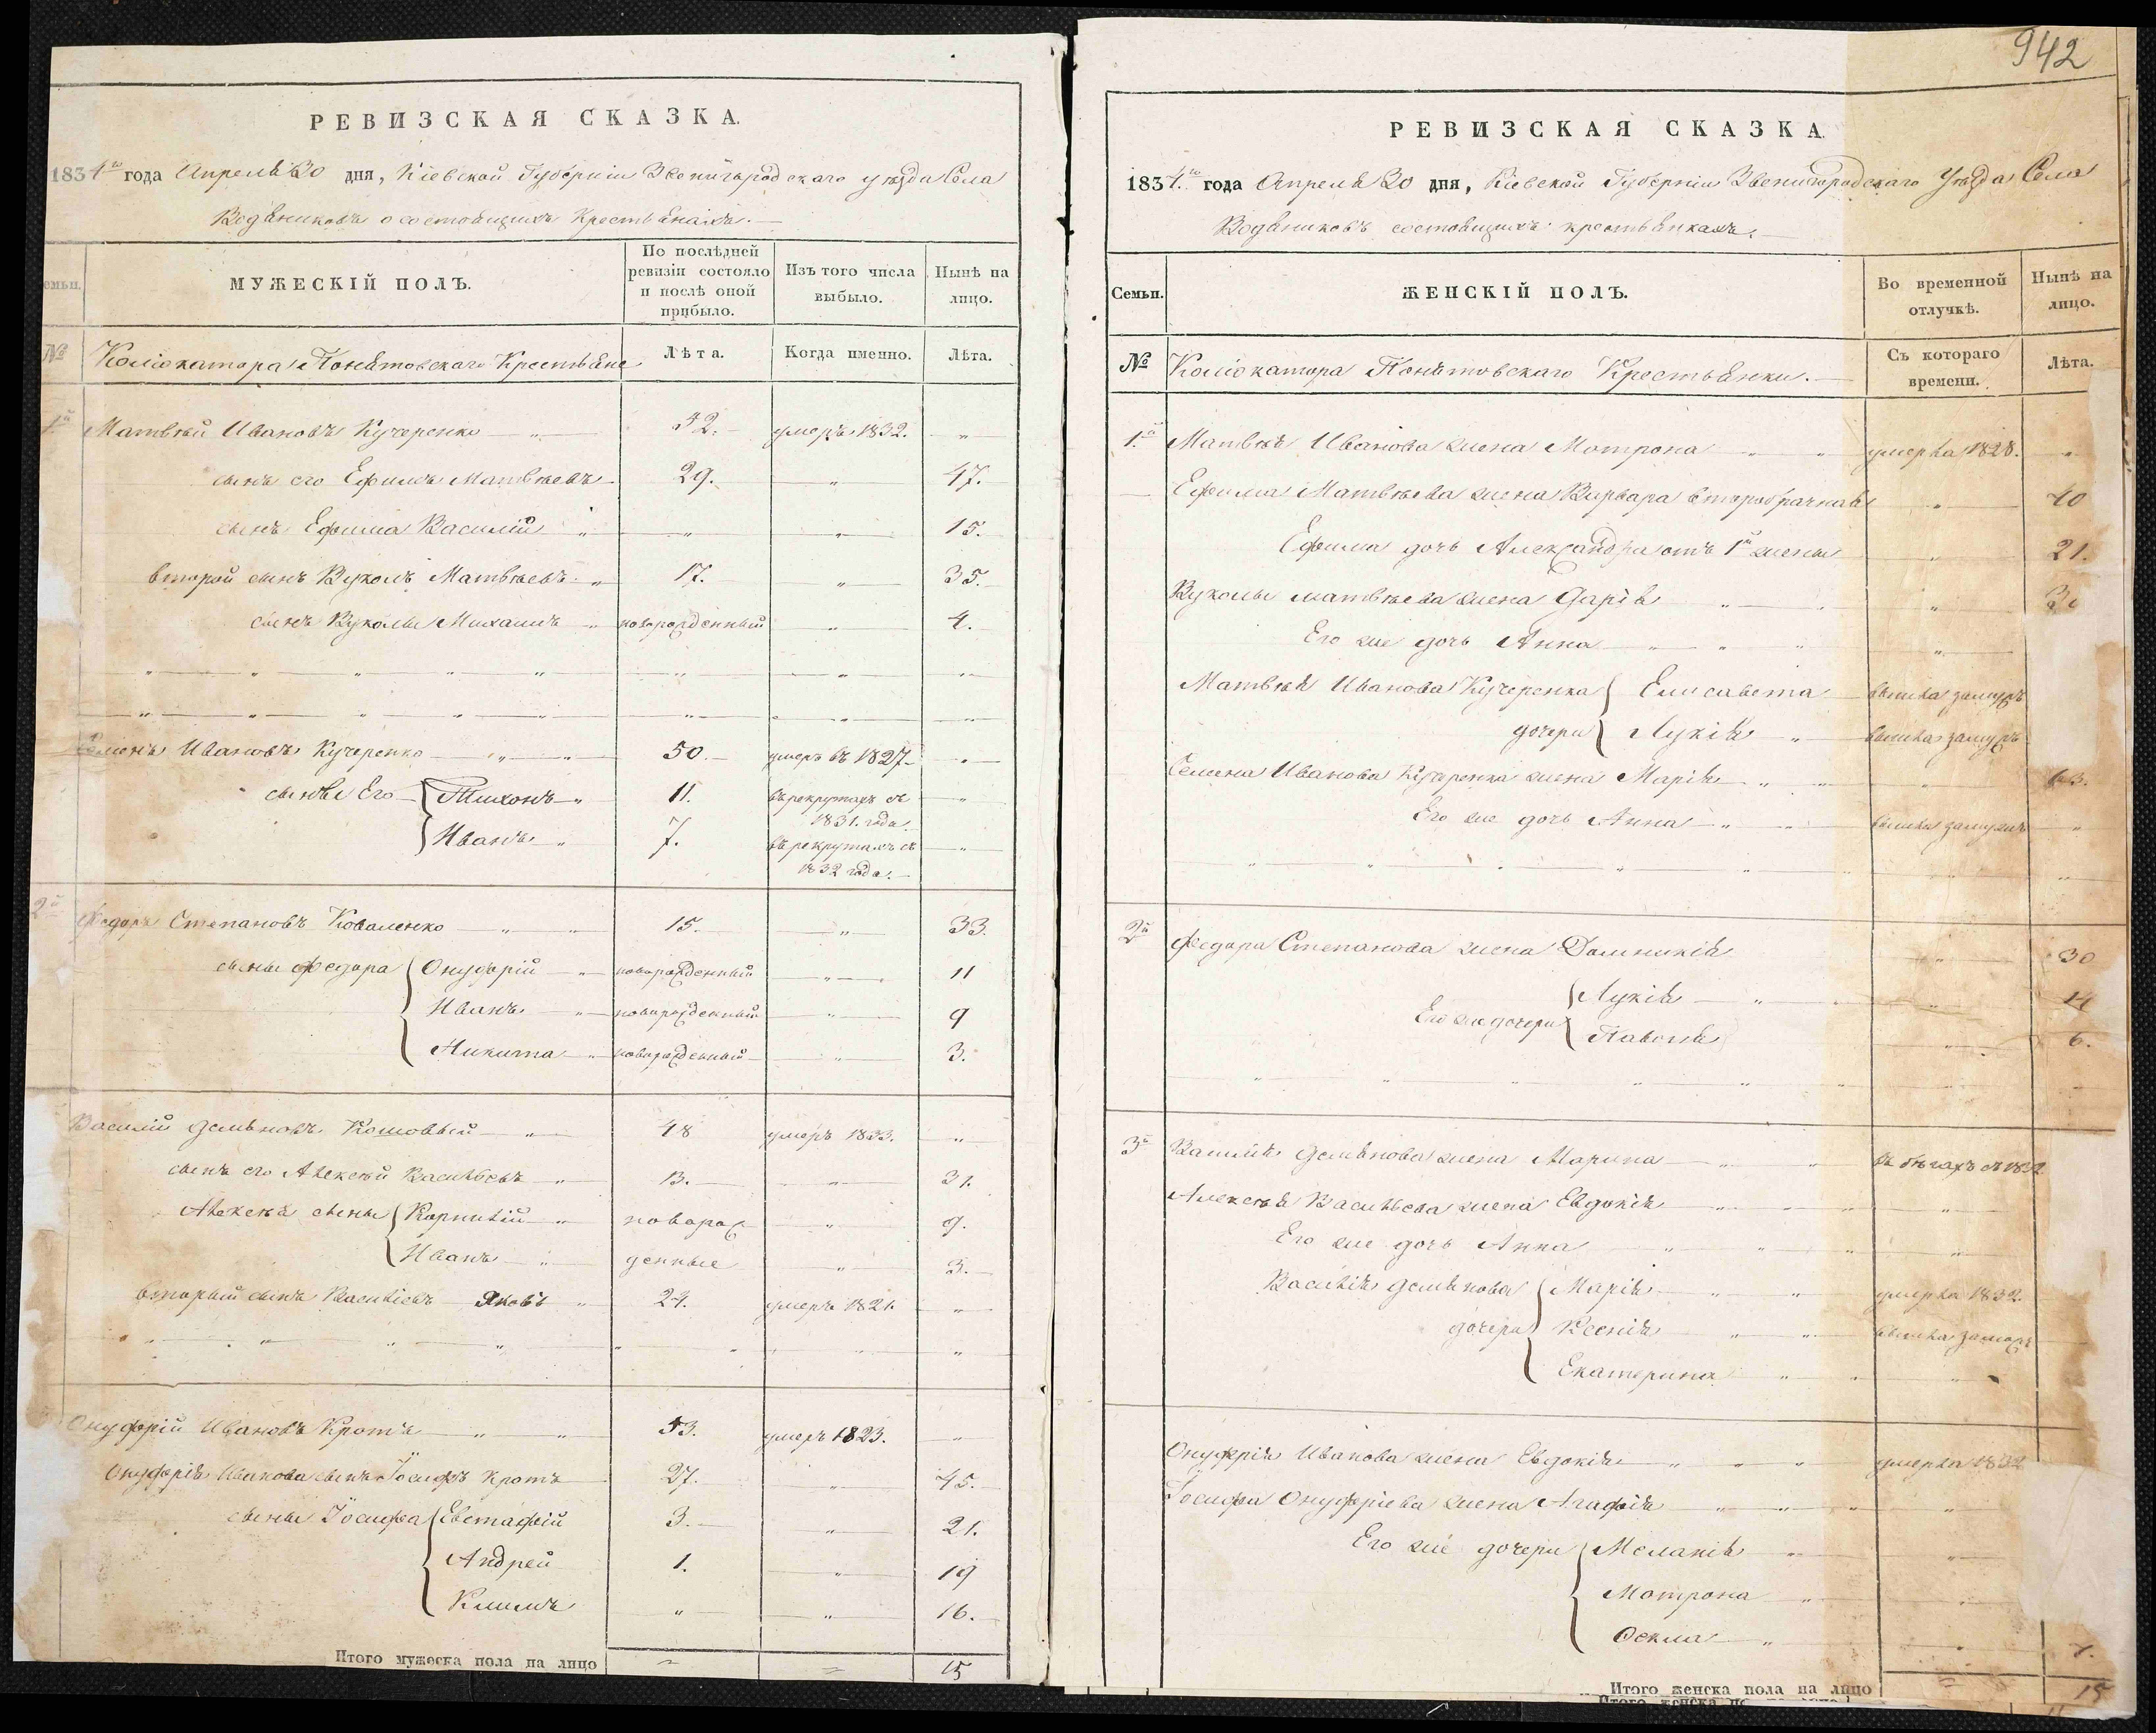 РЕВИЗСКАЯ СКАЗКА.
1834го года Апреля 30 дня, Кіевской Губерніи Звенигородскаго уѣзда Села
Водяниковъ о состоящихъ Крестьянахъ.
семьи.
МУЖЕСКІЙ ПОЛЪ.
По послѣдней
ревизіи состояло
и послѣ оной
прибыло.
Изъ того числа
выбыло.
Нынѣ на
лицо.
№
Коліокатора Понятовскаго Крестьяне
Лѣта.
Когда именно.
Лѣта.
1й Матвѣй Ивановъ Кучеренко 42. умеръ 1832. „
сынъ его Ефимъ Матвѣевъ 29. „ 47.
сынъ Ефима Василій „ „ „ 15.
второй сынъ Вуколъ Матвѣевъ „ 17. „ 35.
сынъ Вуколы Михаилъ „ новорожденный „ 4.
Семенъ Ивановъ Кучеренко 50. умеръ въ 1827 „
сыновья Его Тихонъ „ 11. въ рекрутахъ съ „
1831. года.
Иванъ „ 7. въ рекрутахъ съ „
1832 года.
2й Федоръ Степановъ Коваленко 15. „ 33.
сыны Федора Онуфрій новорожденный „ 11
Иванъ новорожденный „ 9
Никита новорожденный „ 3.
Василій Демьяновъ Кошовый 48 умеръ 1833. „
сынъ его Алексѣй Васильевъ 13. „ 31.
Алексѣя сыны Корнилій новорож „ 9.
Иванъ денные „ 3.
вторый сынъ Василіевъ Яковъ 24. умеръ 1821. „
Онуфрій Ивановъ Кротъ 53. умеръ 1823. „
Онуфрія Иванова сынъ Іосифъ Кротъ 27. „ 45.
сыны Іосифа Евстафій 3. „ 21.
Андрей 1. „ 19
Климъ „ „ 16.
Итого мужеска пола на лицо 15
942
РЕВИЗСКАЯ СКАЗКА.
1834го года Апреля 30 дня, Кіевской Губерніи Звенигородскаго Уѣзда Села
Водяниковъ состоящихъ крестьянкахъ.
Семьи.
ЖЕНСКІЙ ПОЛЪ.
Во временной
отлучкѣ.
Нынѣ на
лицо.
№
Коліокатора Понятовскаго Крестьянки.
Съ котораго
времени.
Лѣта.
1.й Матвѣя Иванова жена Мотрона умерла 1828. „
Ефима Матвѣева жена Варвара второбрачная „ 40
Ефима дочь Александра отъ 1й жены „ 21.
Вуколы Матвѣева жена Дарія „
Его же дочь Анна „
Матвѣя Иванова Кучеренка Елисавета вышла замужъ
дочери Лукія вышла замужъ
Семена Иванова Кучеренка жена Марія „ 63.
Его же дочь Анна вышла замужъ „
2й Федора Степанова жена Домникія „ 30
Его же дочери Лукія „
Павлина „ 6.
3й Василія Демьянова жена Марина въ бѣгахъ съ
Алексѣя Васильева жена Евдокія „
Его же дочь Анна „
Василія Демьянова Марія умерла 1832.
дочери Ксенія вышла замужъ
Екатерина „
Онуфрія Иванова жена Евдокія умерла 1832
Іосифа Онуфріева жена Агафія „
Его же дочери Меланія „
Мотрона „
Ѳекла „
Итого женска пола на лицо 15